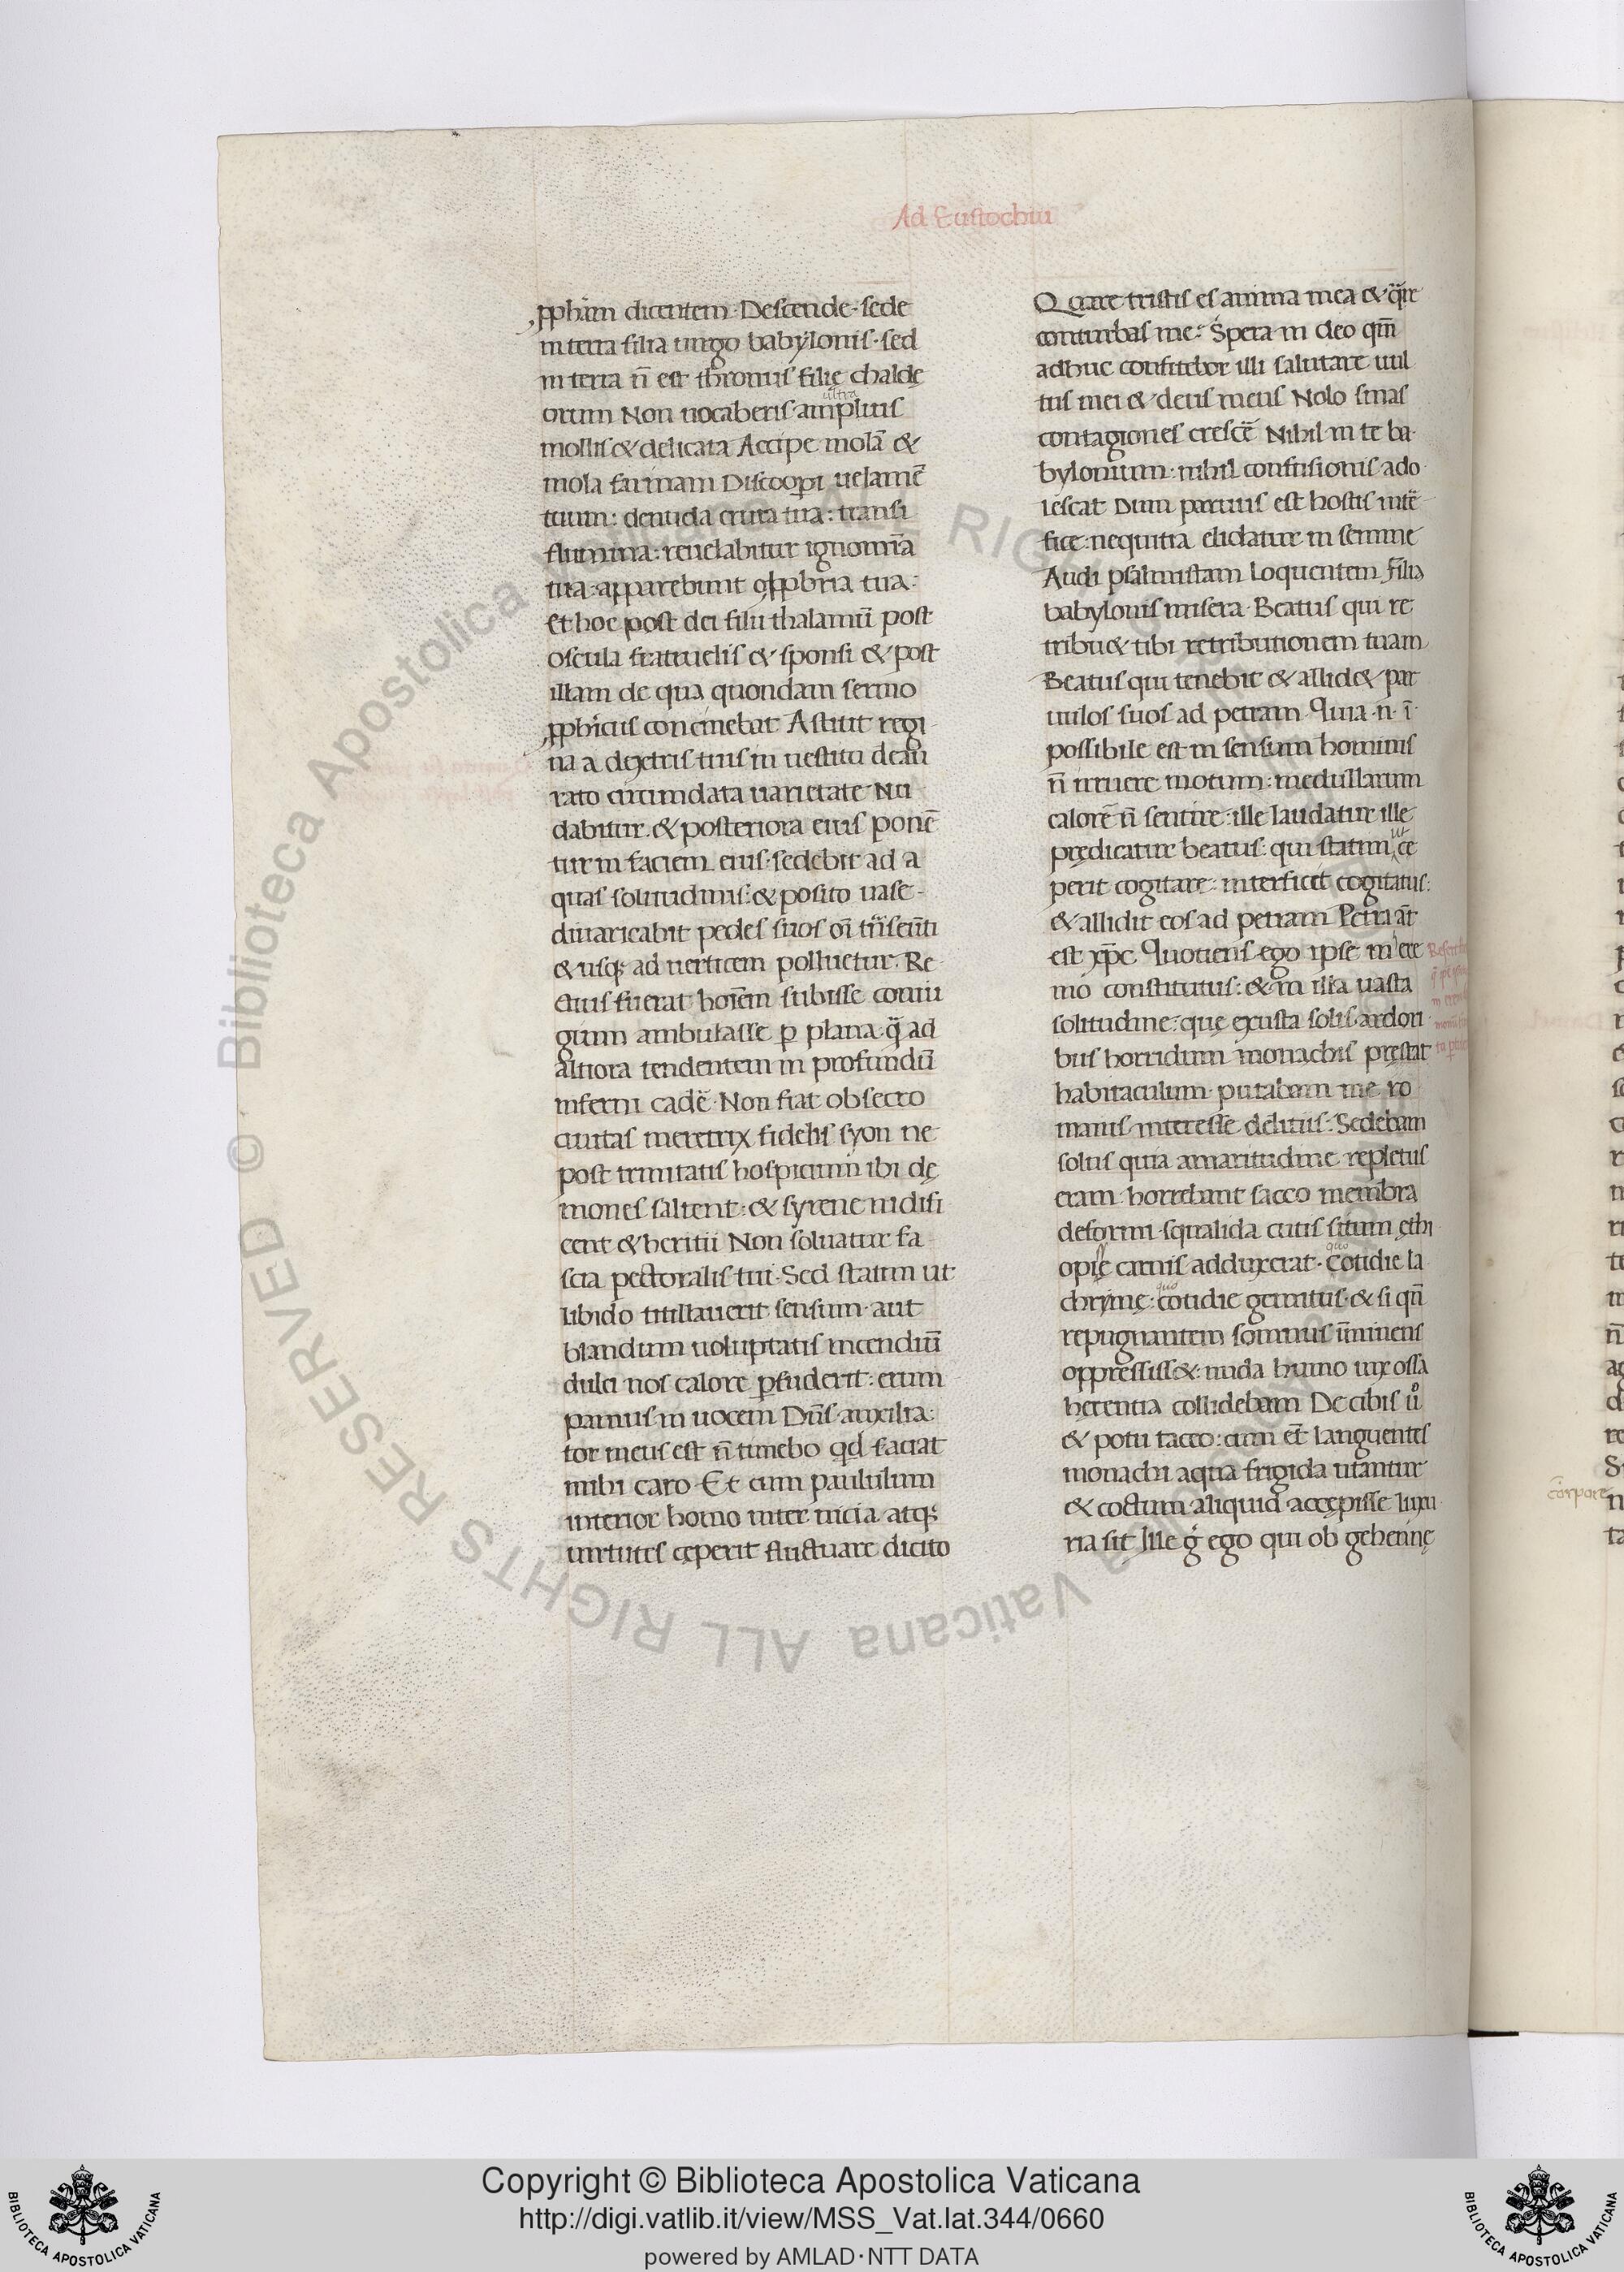 Ad Eustochiū
ꝓph̄am dicentem· Descende· sede
in terra filia uirgo babylonis· sed
in terra n̄ est thronus filię chalde
orum Non uocaberis ampliuſ
ultra
mollis & delicata Accipe molā &
mola farinam Discooꝑi uelamē
tuum: denuda crura tua: transi
flumina: reuelabitur ignom̄ia
tua: apparebunt oꝓpbria tua:
Et hoc post dei filii thalamū post
oscula fratruelis & sponsi & post
illam de qua quondam sermo
ꝓph̄icus concinebat Astitit regi
na a dextris tuis in uestitu deau
rato circumdata uarietate Nu
dabitur· & posteriora eius ponē
tur in faciem eius· sedebit ad a
quas solitudinis: & posito uase
diuaricabit pedes suos oī trāseūti
& usq; ad uerticem polluetur· Re
ctius fuerat hoīem subisse coniu
gium ambulasse ꝑ plana· q̄ ad
altiora tendentem in profundū
inferni cadē· Non fiat obsecro
ciuitas meretrix fidelis syon ne
post trinitatis hospicium ibi dę
mones saltent: & syrene nidifi
cent & heritii Non soluatur fa
scia pectoralis tui· Sed statim ut
libido titillauerit sensum· aut
blandum uoluptatis incendiū
dulci nos calore ꝑfuderit: erum
pamus in uocem Dn̄s auxilia
tor meus est n̄ timebo qd faciat
mihi caro· Et cum paululum
interior homo inter uicia atq;
uirtutes cęperit fluctuare dicito
Quare tristis es anima mea & q̄re
conturbas me: Spera in deo qm̄
adhuc confitebor illi salutare uul
tus mei & deus meus Nolo sinas
contagiones crescē Nihil in te ba
bylonium· nihil confusionis ado
lescat Dum paruus est hostis intē
fice· nequitia elidatur in semine
Audi psalmistam loquentem Filia
babylonis misera· Beatus qui re
tribu& tibi retributionem tuam
Beatus qui tenebit & allid& par
uulos suos ad petram· Quia· n· ī
possibile est in sensum hominis
n̄ irruere motum: medullarum
calorē n̄ sentire: ille laudatur ille
prędicatur beatus: qui statim ce
ut
perit cogitare: interficit cogitatus:
& allidit eos ad petram Petra aūt
est xp̄c· Quotiens ego ipse in ere
mo constitutus: & in illa uasta
solitudine: quę exusta solis ardori
bus horridum monachis pręstat
habitaculum· putabam me ro
manis interesse delitiis: Sedebam
solus quia amaritudine repletus
eram· horrebant sacco membra
deformi· squalida cutis situm ęthi
opię carnis adduxerat· Cotidie la
quo
chrimę: cotidie gemitus· & si qn̄
quo
repugnantem somnus īminens
oppressiss&: nuda humo uix ossa
herentia collidebam De cibis ů
& potu taceo: cum et̄ languentes
monachi aqua frigida utantur
& coctum aliquid accępisse luxu
ria sit Ille g̊ ego qui ob gehennę
corpore
© Biblioteca Apostolica Vaticana ALL RIGHTS RESERVED
Copyright © Biblioteca Apostolica Vaticana
http://digi.vatlib.it/view/MSS_Vat.lat.344/0660
powered by AMLAD·NTT DATA
BIBLIOTECA APOSTOLICA VATICANA
BIBLIOTECA APOSTOLICA VATICANA